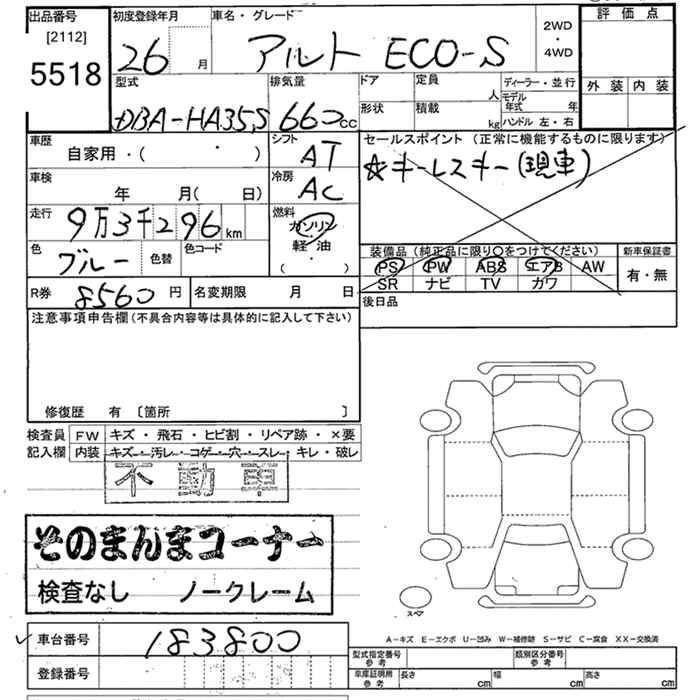 出品番号 初度登録年月 車名・グレード 2WD・4WD 評価点
[2112]
5518 26 月 アルト ECO-S
型式 排気量 ドア 定員 人 ディーラー・並行 外装 内装
DBA-HA35S 660cc 形状 積載 kg モデル年式 年 ハンドル 左・右
車歴 シフト セールスポイント（正常に機能するものに限ります）
自家用・（ ・ ） AT ☆キーレスキー(現車)
車検 冷房
年 月（ 日） AC
走行 燃料
9万3千296km ガソリン
色 ブルー 色替 色コード 軽油
（ ・ ）
装備品（純正品に限り〇をつけてください） 新車保証書
PS PW ABS エアB AW 有・無
SR ナビ TV カワ
R券 8560円 名変期限 月 日 後日品
注意事項申告欄（不具合内容等は具体的に記入して下さい）
修復歴 有 〔箇所 〕
検査員 FW キズ・飛石・ヒビ割・リペア跡・×要
記入欄 内装 キズ・汚レ・コゲ・穴・スレ・キレ・破レ
不動車
そのまんまコーナー
検査なし ノークレーム
スペア
A－キズ E－エクボ U－凹み W－補修跡 S－サビ C－腐食 XX－交換済
車台番号 183800
登録番号
型式指定番号 参考 類別区分番号 参考
車庫証明用 参考 長さ cm 幅 cm 高さ cm